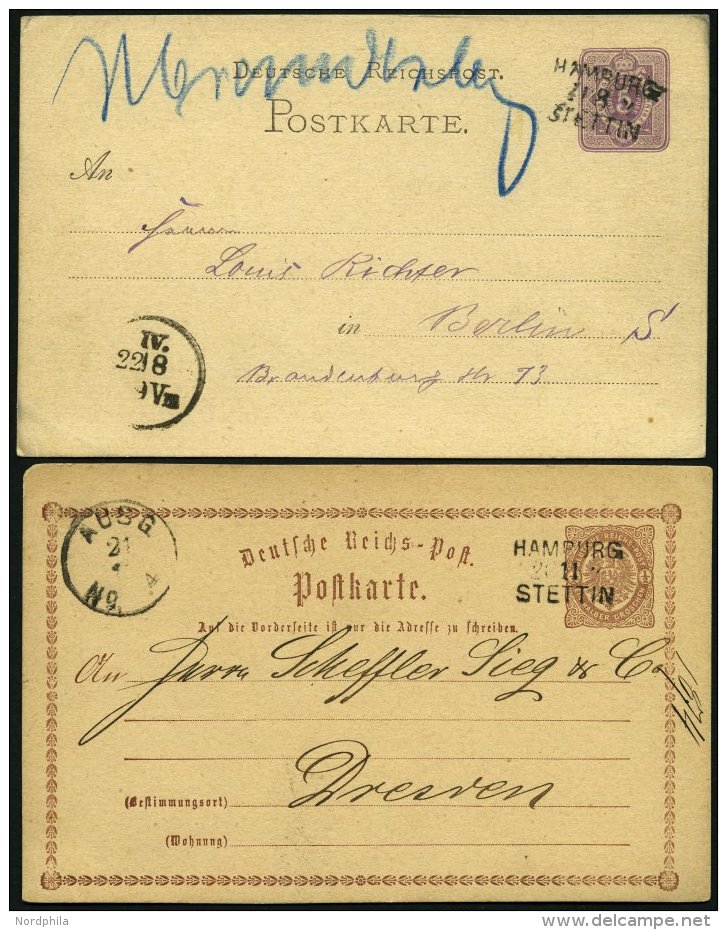 DEUTSCHE REICHSPOST.
POSTKARTE.
HAMBURG
STETTIN
An
Herrn
Louis Richter
in Berlin S
Brandenburg Str 73
IV.
22 8
9 Vm
AUSG
21
No 4
Deutsche Reichs-Post.
Postkarte.
HAMBURG
11
STETTIN
HALBER GROSCHEN
Auf die Vorderseite ist nur die Adresse zu schreiben.
An Herrn Scheffler Sieg & Co
Dresden
(Bestimmungsort)
(Wohnung)
Nordphila
delcampe.net